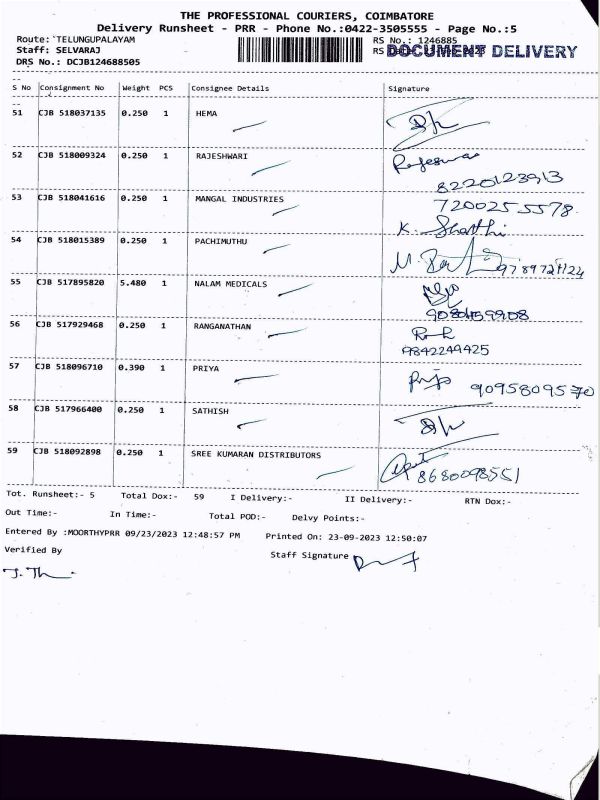 THE PROFESSIONAL COURIERS, COIMBATORE
Delivery Runsheet - PRR - Phone No.:0422-3505555 - Page No.:5
Route: TELUNGUPALAYAM
RS No.: 1246885
Staff: SELVARAJ
RS
DOCUMENT DELIVERY
DRS No.: DCJB124688505
S No Consignment No Weight PCS Consignee Details Signature
51 CJB 518037135 0.250 1 HEMA
52 CJB 518009324 0.250 1 RAJESHWARI
8220123913
53 CJB 518041616 0.250 1 MANGAL INDUSTRIES 7200255578
K. Shanthi
54 CJB 518015389 0.250 1 PACHIMUTHU
55 CJB 517895820 5.480 1 NALAM MEDICALS
56 CJB 517929468 0.250 1 RANGANATHAN
9842249425
57 CJB 518096710 0.390 1 PRIYA
9095809570
58 CJB 517966400 0.250 1 SATHISH
59 CJB 518092898 0.250 1 SREE KUMARAN DISTRIBUTORS
8680098551
Tot. Runsheet:- 5 Total Dox:- 59 I Delivery:- II Delivery:- RTN Dox:-
Out Time:- In Time:- Total POD:- Delvy Points:-
Entered By :MOORTHYPRR 09/23/2023 12:48:57 PM Printed On: 23-09-2023 12:50:07
Verified By Staff Signature